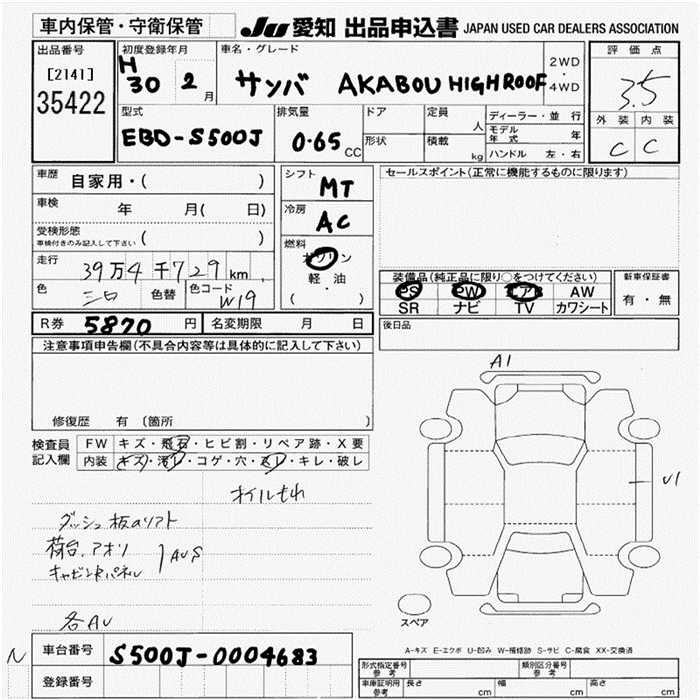 車内保管・守衛保管
JU 愛知 出品申込書 JAPAN USED CAR DEALERS ASSOCIATION
出品番号 初度登録年月 車名・グレード 2WD・4WD 評価点
[2141] H 30 2月 サンバ AKABOU HIGHROOF 3.5
35422
型式 排気量 ドア 定員 人 ディーラー・並行 外装 内装
EBD-S500J 0.65 CC 形状 積載 kg モデル年式 年 C C
ハンドル 左・右
車歴 自家用・( ) シフト MT セールスポイント(正常に機能するものに限ります)
車検 年 月( 日) 冷房 AC
受検形態 ( )
車検付きのみ記入して下さい
燃料 ガソリン 軽・油 (・)
走行 39万4千729km
色 シロ 色替 色コード W19
装備品(純正品に限り○をつけてください) 新車保証書
PS PW エアB AW 有・無
SR ナビ TV カワシート
R券 5870円 名変期限 月 日 後日品
注意事項申告欄(不具合内容等は具体的に記入して下さい)
修復歴 有 〔箇所 〕
検査員記入欄 FW キズ・飛石・ヒビ割・リペア跡・X要
内装 キズ・汚レ・コゲ・穴・スレ・キレ・破レ
オイルもれ
A1
U1
荷台、アオリ
各AU
スペア
A-キズ E-エクボ U-凹み W-補修跡 S-サビ C-腐食 XX-交換済
N 車台番号 S500J-0004683
登録番号
形式指定番号 参考 類別区分番号 参考
車庫証明用 参考 長さ cm 幅 cm 高さ cm